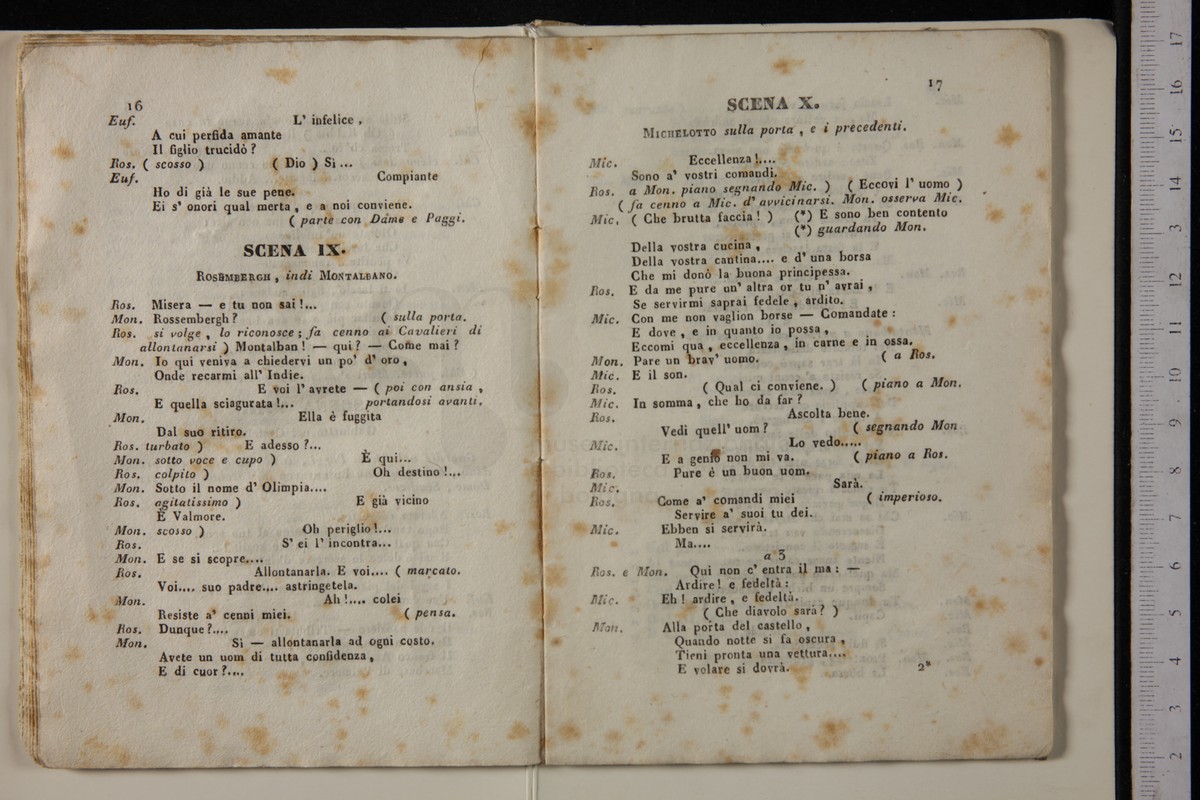 16
Euf. L' infelice,
A cui perfida amante
Il figlio trucidò?
Ros. ( scosso ) ( Dio ) Sì...
Euf. Compiante
Ho di già le sue pene.
Ei s' onori qual merta, e a noi conviene.
( parte con Dame e Paggi.
SCENA IX.
ROSEMBERGH, indi MONTALBANO.
Ros. Misera — e tu non sai!...
Mon. Rossembergh? ( sulla porta.
Ros. si volge, lo riconosce; fa cenno ai Cavalieri di
allontanarsi ) Montalban! — qui? — Come mai?
Mon. Io qui veniva a chiedervi un po' d' oro,
Onde recarmi all' Indie.
Ros. E voi l' avrete — ( poi con ansia,
E quella sciagurata!... portandosi avanti.
Mon. Ella è fuggita
Dal suo ritiro.
Ros. turbato ) E adesso?...
Mon. sotto voce e cupo ) È qui...
Ros. colpito ) Oh destino!...
Mon. Sotto il nome d' Olimpia....
Ros. agitatissimo ) E già vicino
È Valmore.
Mon. scosso ) Oh periglio!...
Ros. S' ei l' incontra...
Mon. E se si scopre....
Ros. Allontanarla. E voi.... ( marcato.
Voi.... suo padre.... astringetela.
Mon. Ah!.... colei
Resiste a' cenni miei. ( pensa.
Ros. Dunque?....
Mon. Sì — allontanarla ad ogni costo.
Avete un uom di tutta confidenza,
E di cuor?....
17
SCENA X.
MICHELOTTO sulla porta, e i precedenti.
Mic. Eccellenza!....
Sono a' vostri comandi.
Ros. a Mon. piano segnando Mic. ) ( Eccovi l' uomo )
( fa cenno a Mic. d' avvicinarsi. Mon. osserva Mic.
Mic. ( Che brutta faccia! ) (*) E sono ben contento
(*) guardando Mon.
Della vostra cucina,
Della vostra cantina.... e d' una borsa
Che mi donò la buona principessa.
Ros. E da me pure un' altra or tu n' avrai,
Se servirmi saprai fedele, ardito.
Mic. Con me non vaglion borse — Comandate:
E dove, e in quanto io possa,
Eccomi qua, eccellenza, in carne e in ossa.
Mon. Pare un brav' uomo. ( a Ros.
Mic. E il son.
Ros. ( Qual ci conviene. ) ( piano a Mon.
Mic. In somma, che ho da far?
Ros. Ascolta bene.
Vedi quell' uom? ( segnando Mon.
Mic. Lo vedo.....
E a genio non mi va. ( piano a Ros.
Ros. Pure è un buon uom.
Mic. Sarà.
Ros. Come a' comandi miei ( imperioso.
Servire a' suoi tu dei.
Mic. Ebben si servirà.
Ma....
a 3
Ros. e Mon. Qui non c' entra il ma: —
Ardire! e fedeltà:
Mic. Eh! ardire, e fedeltà.
( Che diavolo sarà? )
Mon. Alla porta del castello,
Quando notte si fa oscura,
Tieni pronta una vettura....
E volare si dovrà.
2*